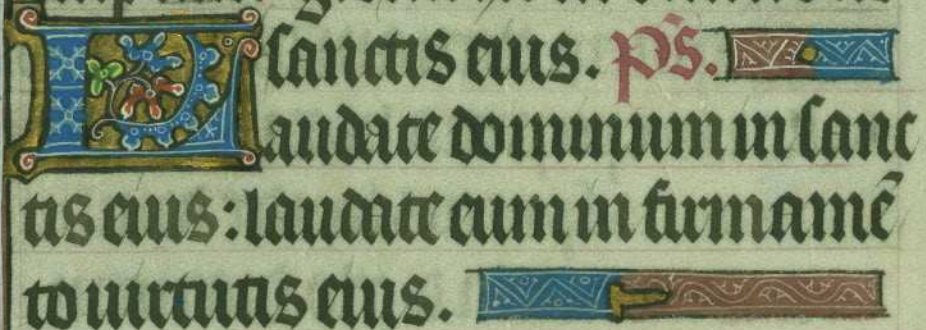 sanctis eius. ps.
Laudate dominum in sanc
tis eius: laudate eum in firmamē
to uirtutis eius.